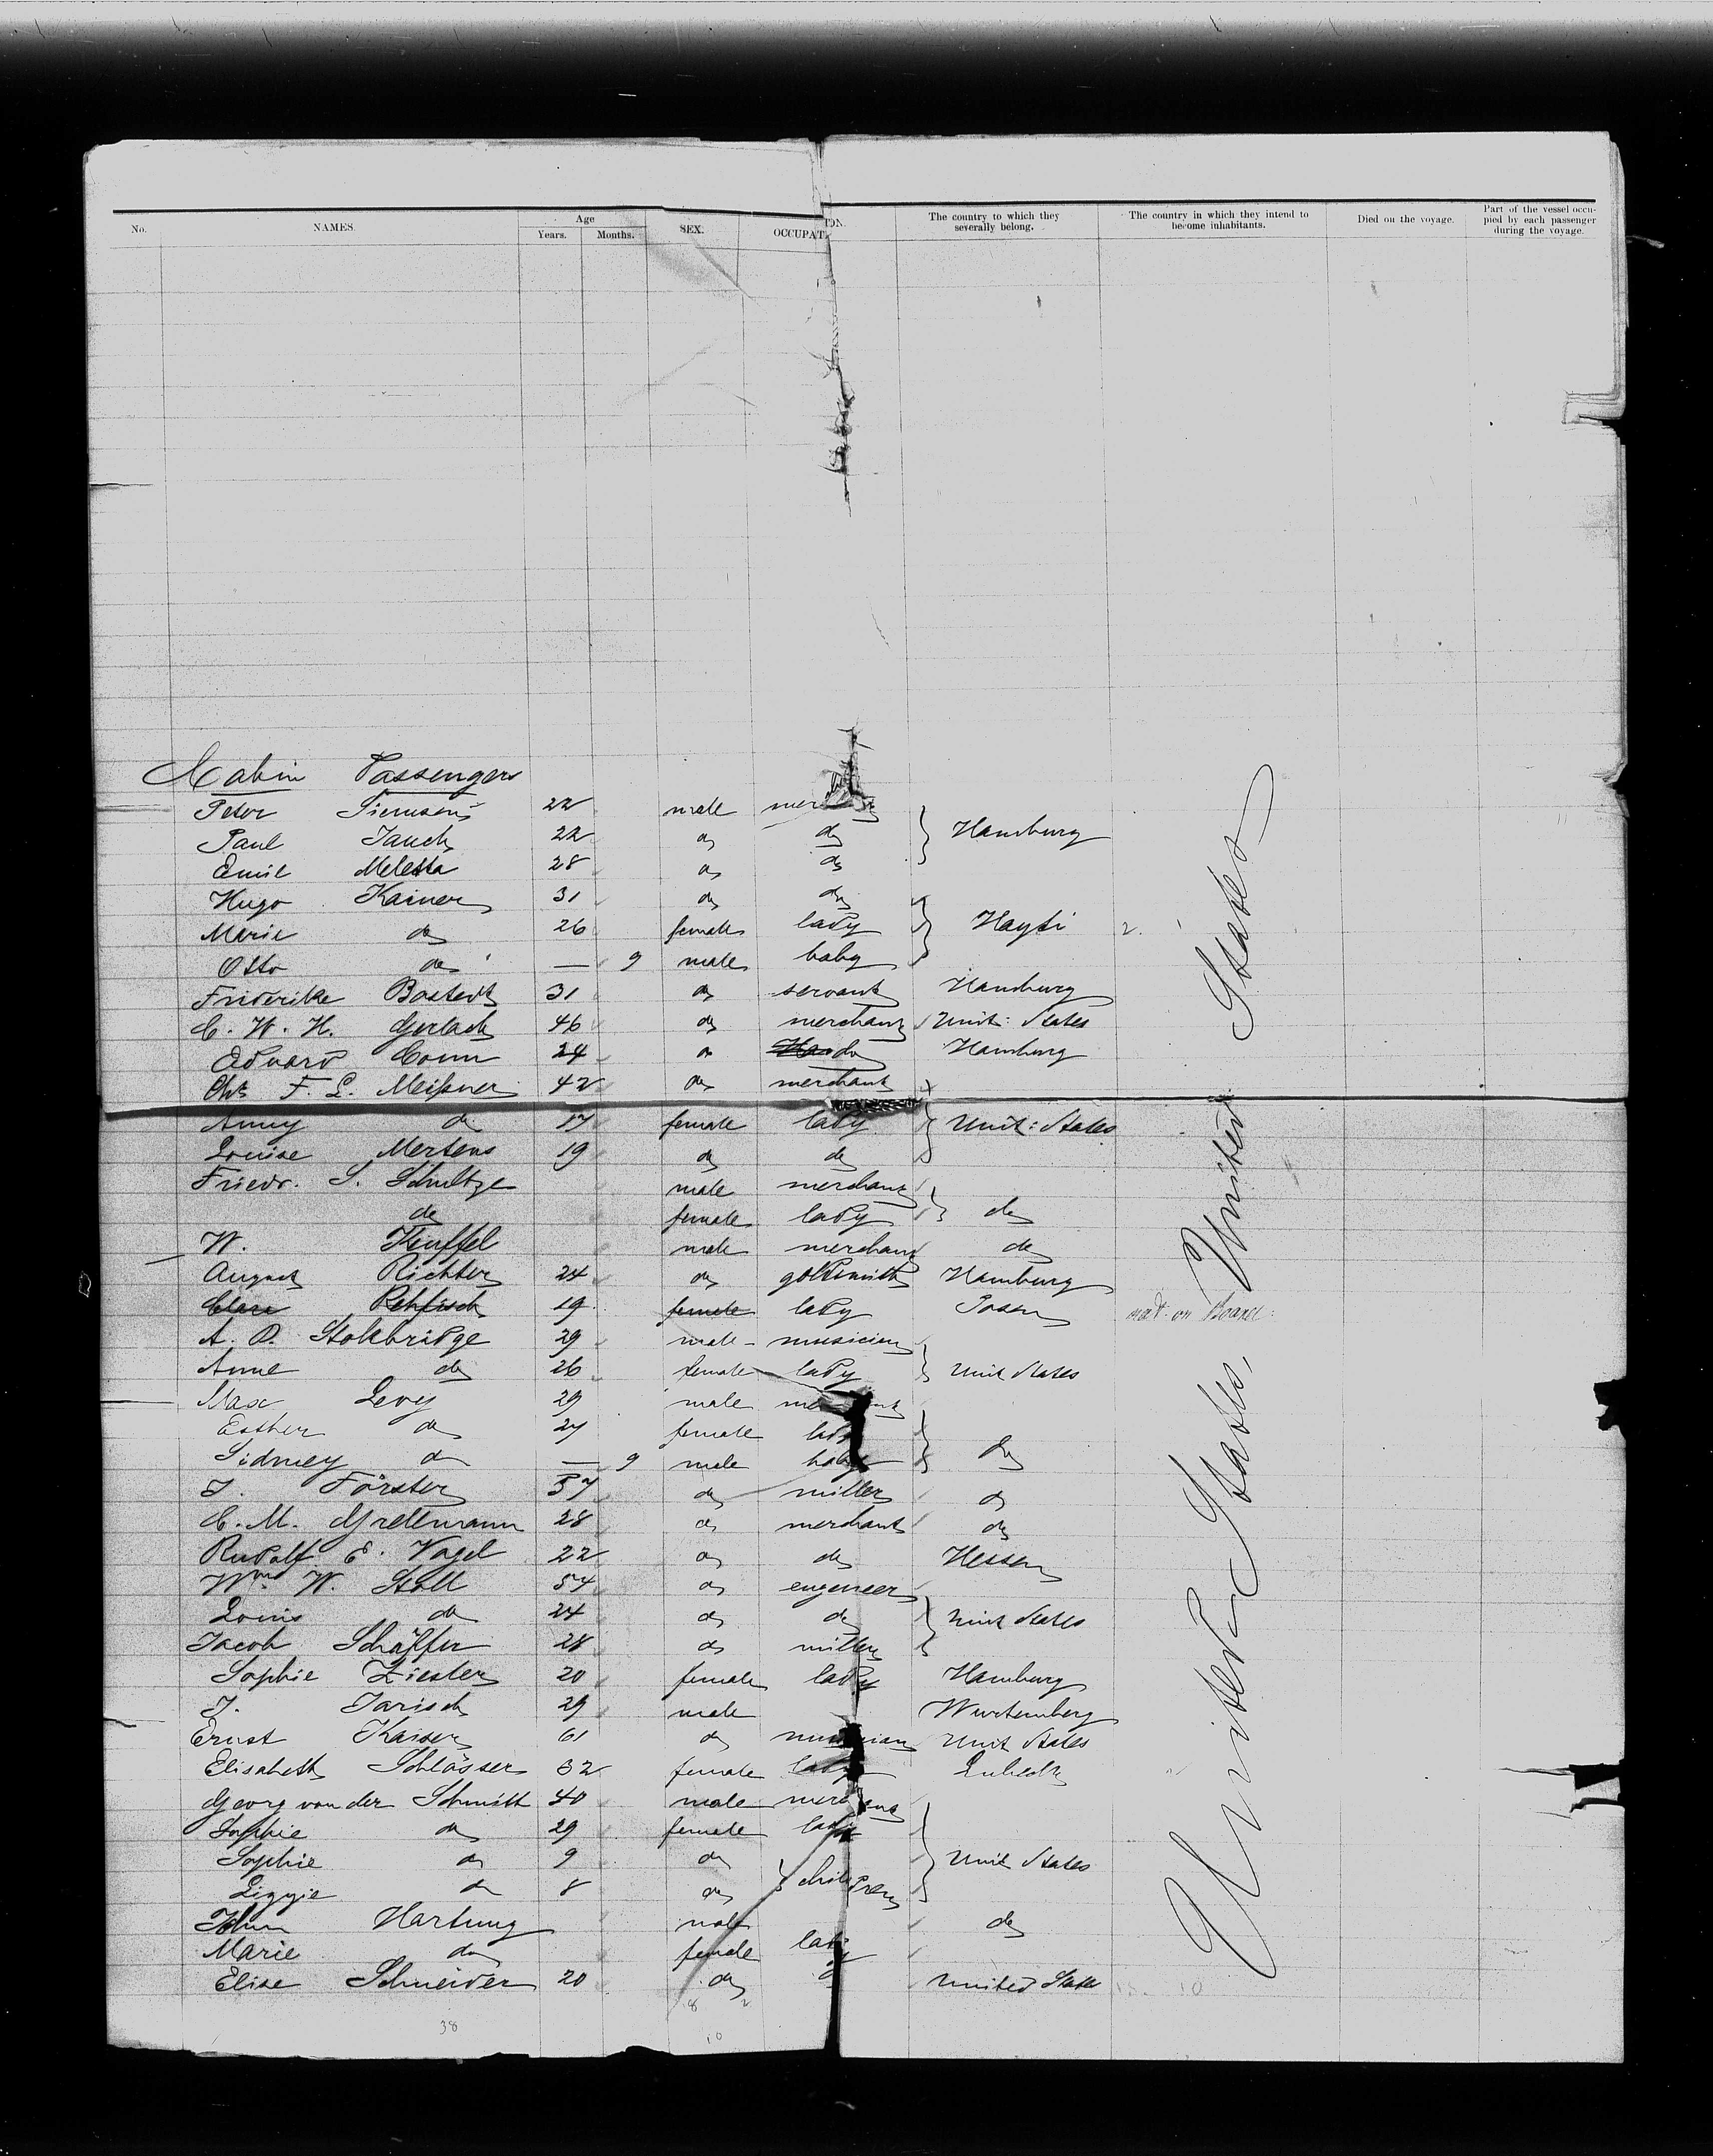 No. NAMES. Age Years. Months. SEX. OCCUPATION. The country to which they severally belong. The country in which they intend to become inhabitants. Died on the voyage. Part of the vessel occupied by each passenger during the voyage.
Cabin Passengers
Peter Siemsen 22 male mer
Paul Jauch 22 do do Hamburg
Emil Meletta 28 do do
Hugo Kainer 31 do do
Marie do 26 female lady Hayti 2.
Otto do — 9 male baby
Friderike Bostedt 31 do servant Hamburg
C. W. H. Gerlach 46 do merchant Unit: States
Edward Conn 24 do do Hamburg
Chs F. L. Meißner 42 do merchant
Anny do 17 female lady Unit: States
Louise Mertens 19 do do
Friedr. S. Schultze male merchant
do female lady do
W. Keuffel male merchant do
August Richter 24 do goldsmith Hamburg
Clara Rehfisch 19 female lady Posen not on Board
A. D. Stokbridge 29 male musician
Anne do 26 female lady Unit States
Max Levy 29 male merchant
Esther do 27 female lady
Sidney do — 9 male baby do
J. Förster 57 do miller do
C. M. Gretemann 28 do merchant do
Rudolf E. Vogel 22 do do Hessen
Wm W. Stoll 54 do engeneer
Louis do 24 do do Unit States
Jacob Schäffer 28 do miller
Sophie Ziesler 20 female lady Hamburg
J. Jarisch 29 male Wurtemberg
Ernst Kaiser 61 do musician Unit States
Elisabeth Schlösser 32 female lady Lubeck
Georg von der Schmitt 40 male merchant
Sophie do 29 female lady
Sophie do 9 do children Unit States
Lizzie do 8 do
John Hartung male do
Marie do female lady
Elise Schneider 20 do United States
38
10
United States, United States